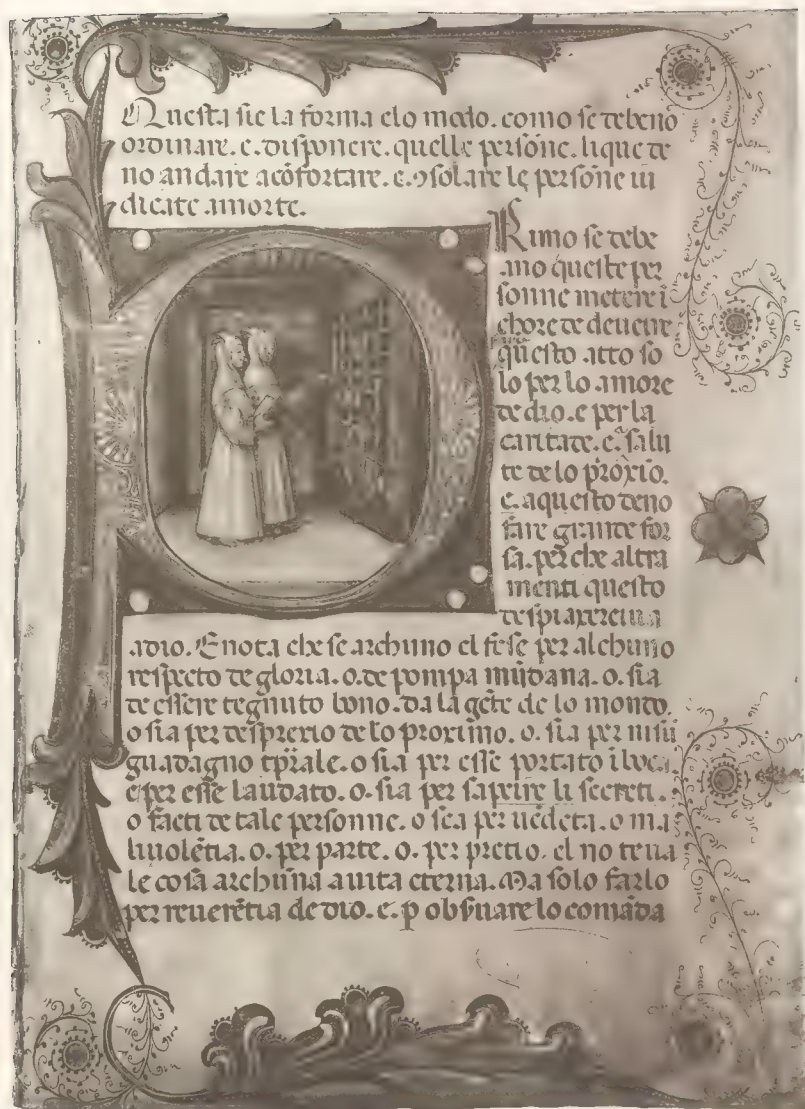 Questa sie la forma elo modo. como se debeno
ordinare. e. disponere. quelle persone. li que de
no andare acõfortare. e. ꝯsolare le persone iu
dicate amorte.
Rimo se debe
ano queste per
sonne metere ĩ
chore de devenire
questo atto so
lo per lo amore
de dio. e per la
caritate. e. salu
te de lo proxio.
e. aquesto deno
fare grante for
sa. per che altra
menti questo
despiaxereiua
adio. E nota che se archuno el fese per alchuno
respecto de gloria. o. de pompa mũdana. o. sia
de essere tegnuto bono. da la gẽte de lo mondo.
o sia per desprexio de lo proximo. o. sia per nisũ
guadagno tp̃rale. o sia per esse portato ĩ boca.
e per esse laudato. o. sia per sapeire li secreti.
o facti de tale personne. o sea per uẽdeta. o ma
liuolẽtia. o. per parte. o. per pretio. el no te ua
le cosa archuna a uita eterna. Ma solo farlo
per reuerẽtia de dio. e. ꝑ obs̃uare lo comãda